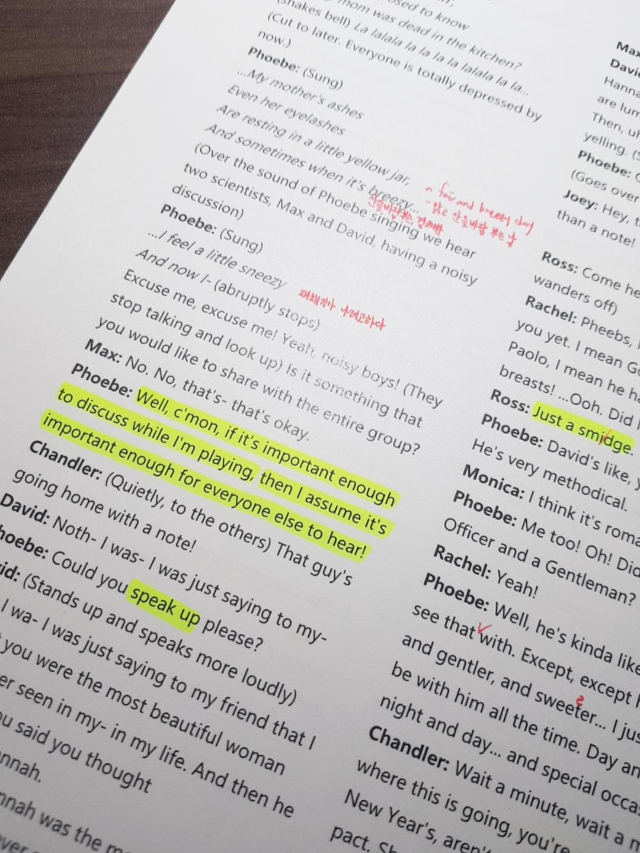 mom was dead in the kitchen?
(shakes bell) La lalala la la la la lalala la la...
(Cut to later. Everyone is totally depressed by
now.)
Phoebe: (Sung)
...My mother's ashes
Even her eyelashes
Are resting in a little yellow jar,
And sometimes when it's breezy...
a fair and breezy day
(Over the sound of Phoebe singing we hear
two scientists, Max and David, having a noisy
discussion)
Phoebe: (Sung)
...I feel a little sneezy
And now I- (abruptly stops)
재채기가 나려고하다
Excuse me, excuse me! Yeah, noisy boys! (They
stop talking and look up) Is it something that
you would like to share with the entire group?
Max: No. No, that's- that's okay.
Phoebe: Well, c'mon, if it's important enough
to discuss while I'm playing, then I assume it's
important enough for everyone else to hear!
Chandler: (Quietly, to the others) That guy's
going home with a note!
David: Noth- I was- I was just saying to my-
Could you speak up please?
(Stands up and speaks more loudly)
I wa- I was just saying to my friend that I
you were the most beautiful woman
seen in my- in my life. And then he
said you thought
was the
Max
David
Hanna
are lum
Then, u
yelling. (S
Phoebe:
(Goes over
Joey: Hey, t
than a note!
Ross: Come he
wanders off)
Rachel: Pheebs,
you yet. I mean G
Paolo, I mean he h
breasts! ...Ooh. Did
Ross: Just a smidge.
Phoebe: David's like, y
He's very methodical.
Monica: I think it's roma
Phoebe: Me too! Oh! Did
Officer and a Gentleman?
Rachel: Yeah!
Phoebe: Well, he's kinda like
see that with. Except, except h
and gentler, and sweeter... I jus
be with him all the time. Day an
night and day... and special occa
Chandler: Wait a minute, wait a m
where this is going, you're
New Year's, aren't
pact. Sh